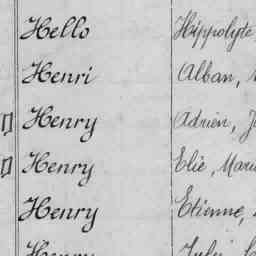 Hello Hippolyte
Henri Alban,
Henry Adrien, J
Henry Elie, Mari
Henry Etienne,
Henry Jules